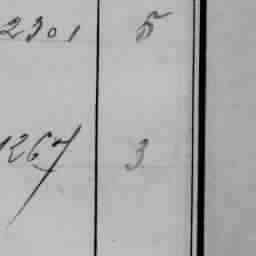 2301 5
1267 3